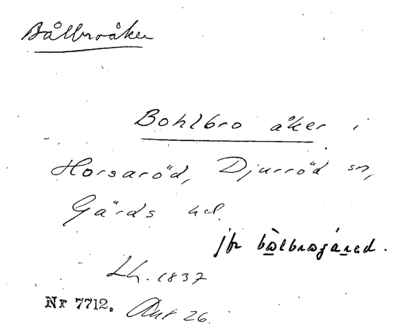 Bålbroåker
Bohlbro åker i
Horsaröd, Djurröd sn,
Gärds hd.
jfr bålbrogárad.
Lh. 1837
Nr 7712. Akt 26.